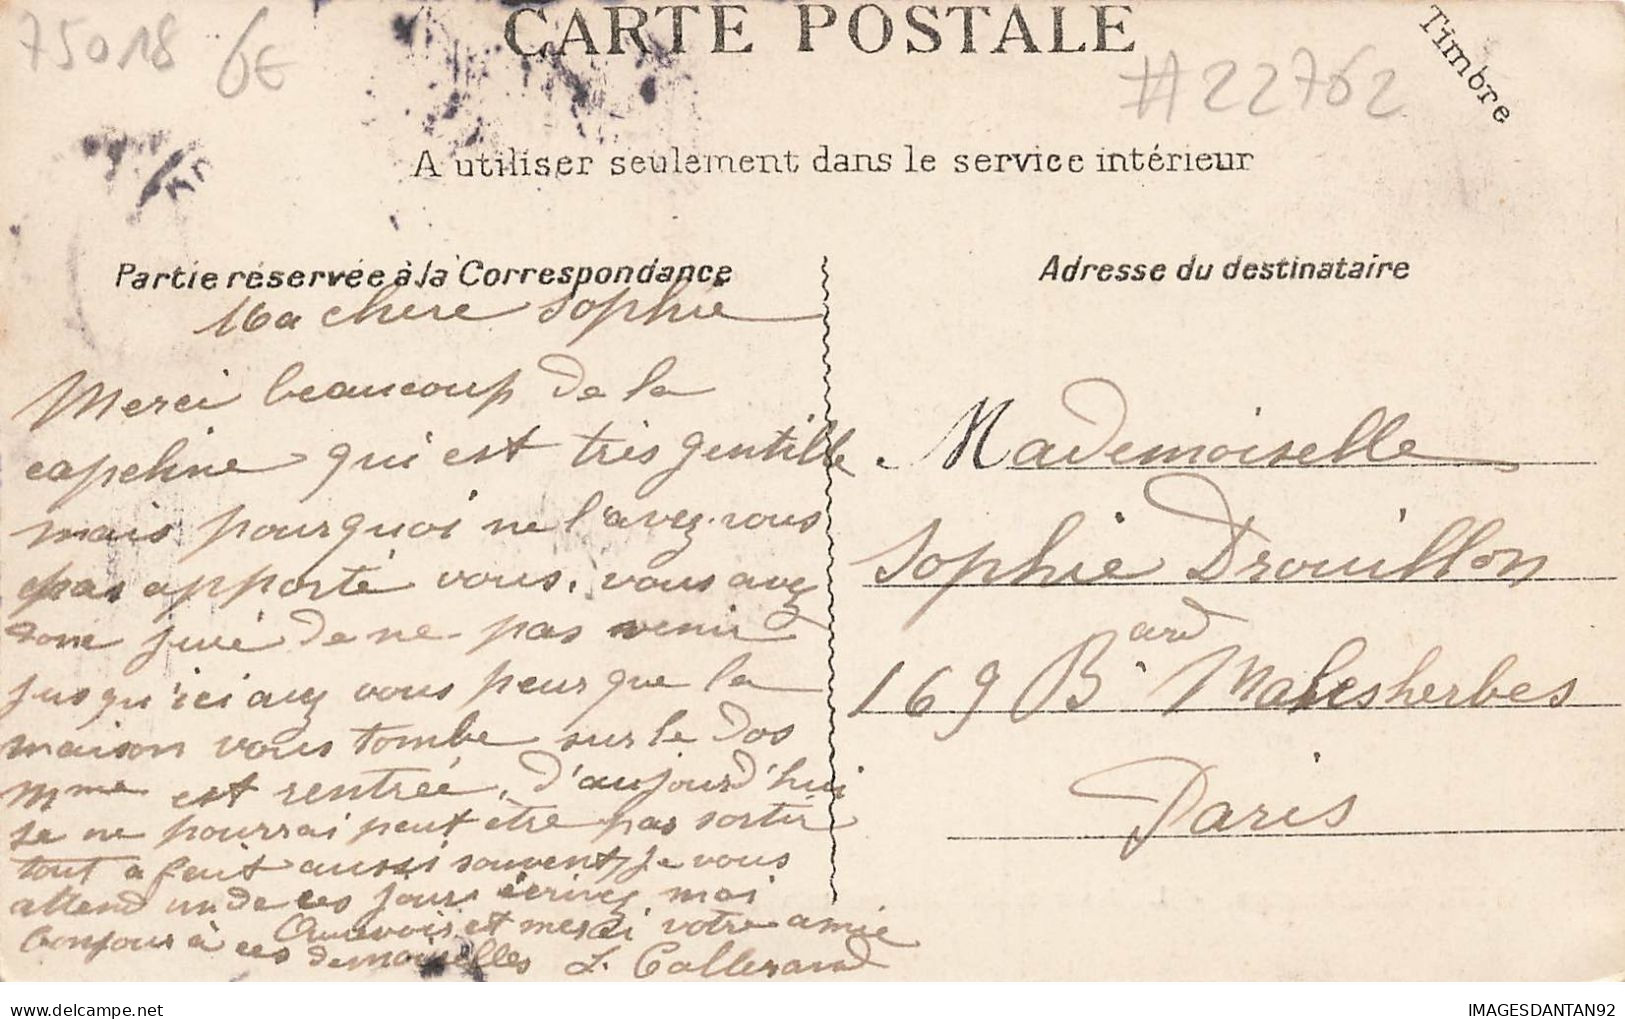 75018 6€
CARTE POSTALE
#22762
Timbre
A utiliser seulement dans le service intérieur
Partie réservée à la Correspondance
Ma chere Sophie
Merci beaucoup de la
capeline qui est très gentille
mais pourquoi ne l'avez-vous
pas apporté vous, vous avez
donc juré de ne pas venir
jusqu'ici avez vous peur que la
maison vous tombe sur le dos
Mme est rentrée, d'aujourd'hui
je ne pourrai peut etre pas sortir
tout a fait aussi souvent, je vous
attend un de ces jours écrivez moi
Aurevoir et merci votre amie
bonjour à ces demoiselles L.
Adresse du destinataire
Mademoiselle
Sophie Drouillon
169 Bard Malesherbes
Paris
IMAGESDANTAN92